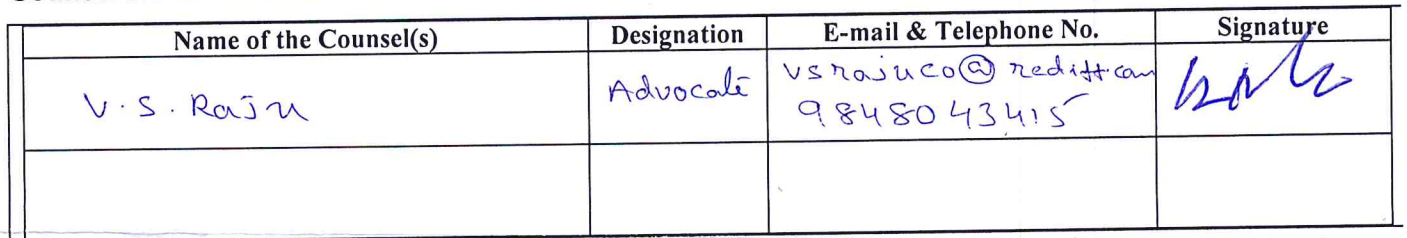 Name of the Counsel(s) Designation E-mail & Telephone No. Signature
V.S. Raju Advocate vsrajuco@rediff.com
9848043415